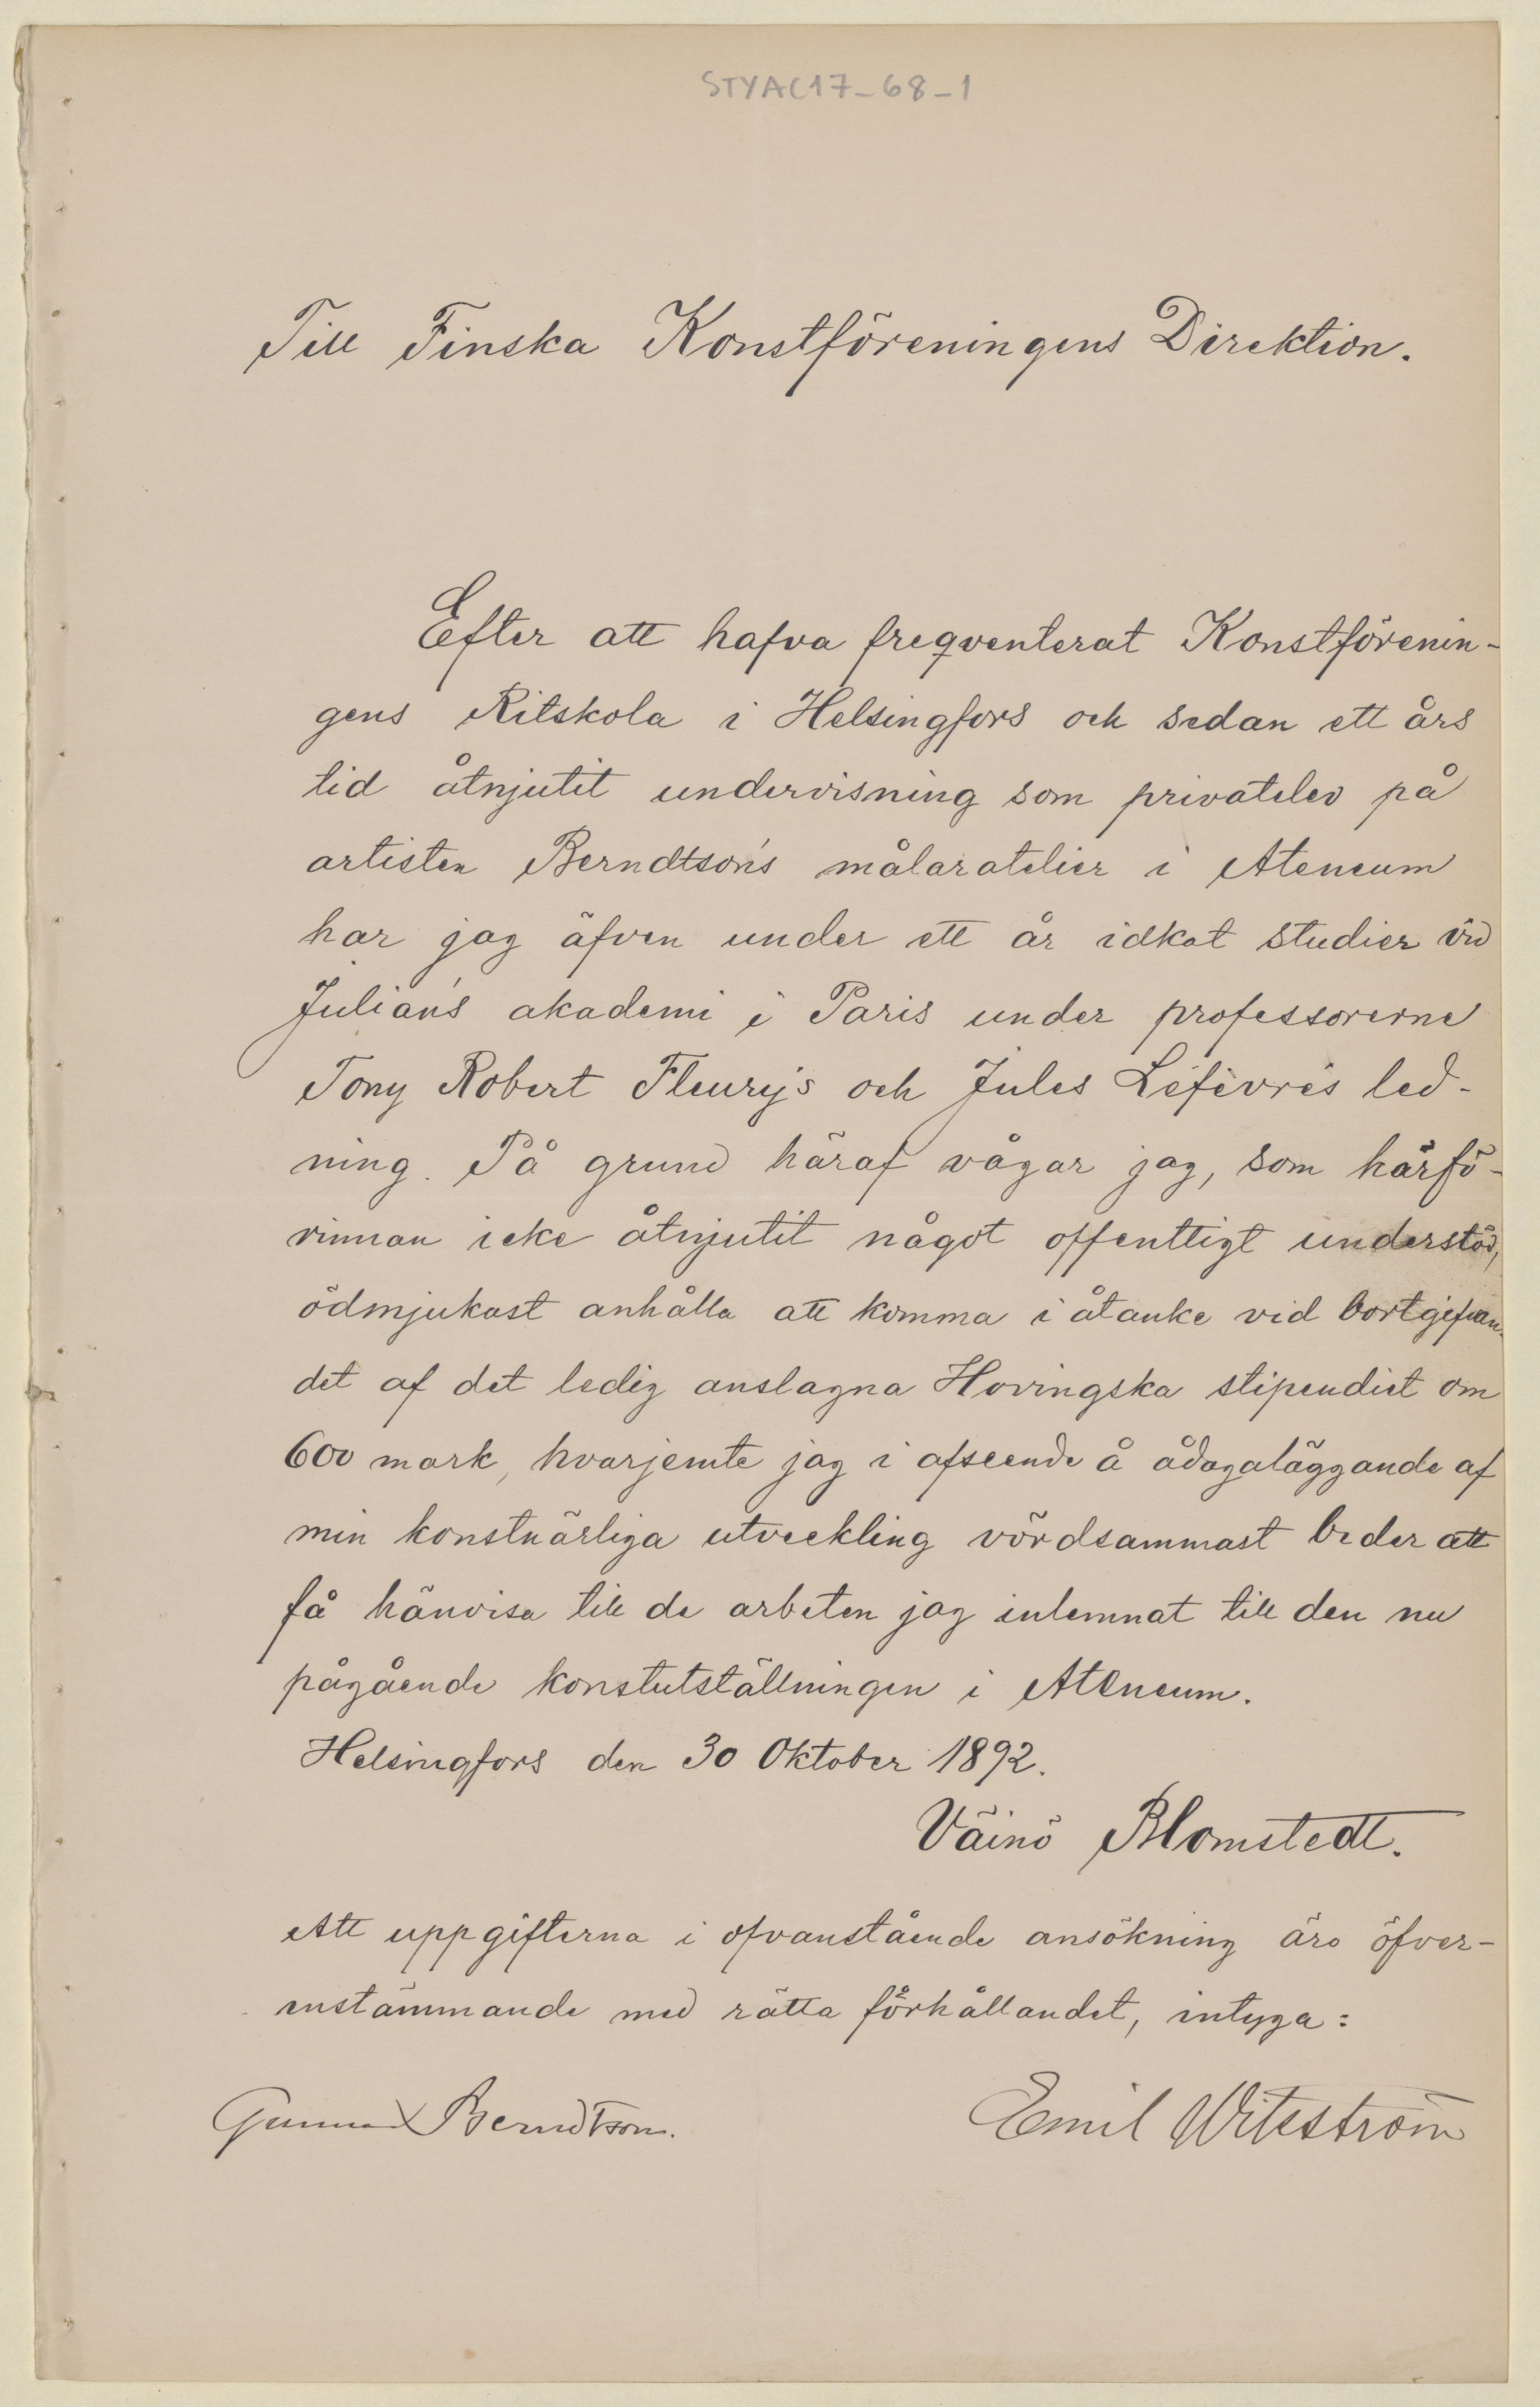 STYAC17-68-1
Till Finska Konstföreningens Direktion.
Efter att hafva freqventerat Konstförenin-
gens Ritskola i Helsingfors och sedan ett års
tid åtnjutit undervisning som privatelev på
artisten Berndtson's målaratelier i Ateneum
har jag äfven under ett år idkat studier vid
Julian's akademi i Paris under professorerne
Tony Robert Fleury's och Jules Léfèvre's led-
ning. På grund häraf vågar jag, som härfö-
rinnan icke åtnjutit något offentligt understöd,
ödmjukast anhålla att komma i åtanke vid bortgifvan-
det af det ledig anslagna Hovingska stipendiet om
600 mark, hvarjemte jag i afseende å ådagaläggande af
min konstnärliga utveckling vördsammast beder att
få hänvisa till de arbeten jag inlemnat till den nu
pågående konstutställningen i Ateneum.
Helsingfors den 30 Oktober 1892.
Väinö Blomstedt.
Att uppgifterna i ofvanstående ansökning äro öfver-
enstämmande med rätta förhållandet, intyga:
Gunnar Berndtson.
Emil Wikström